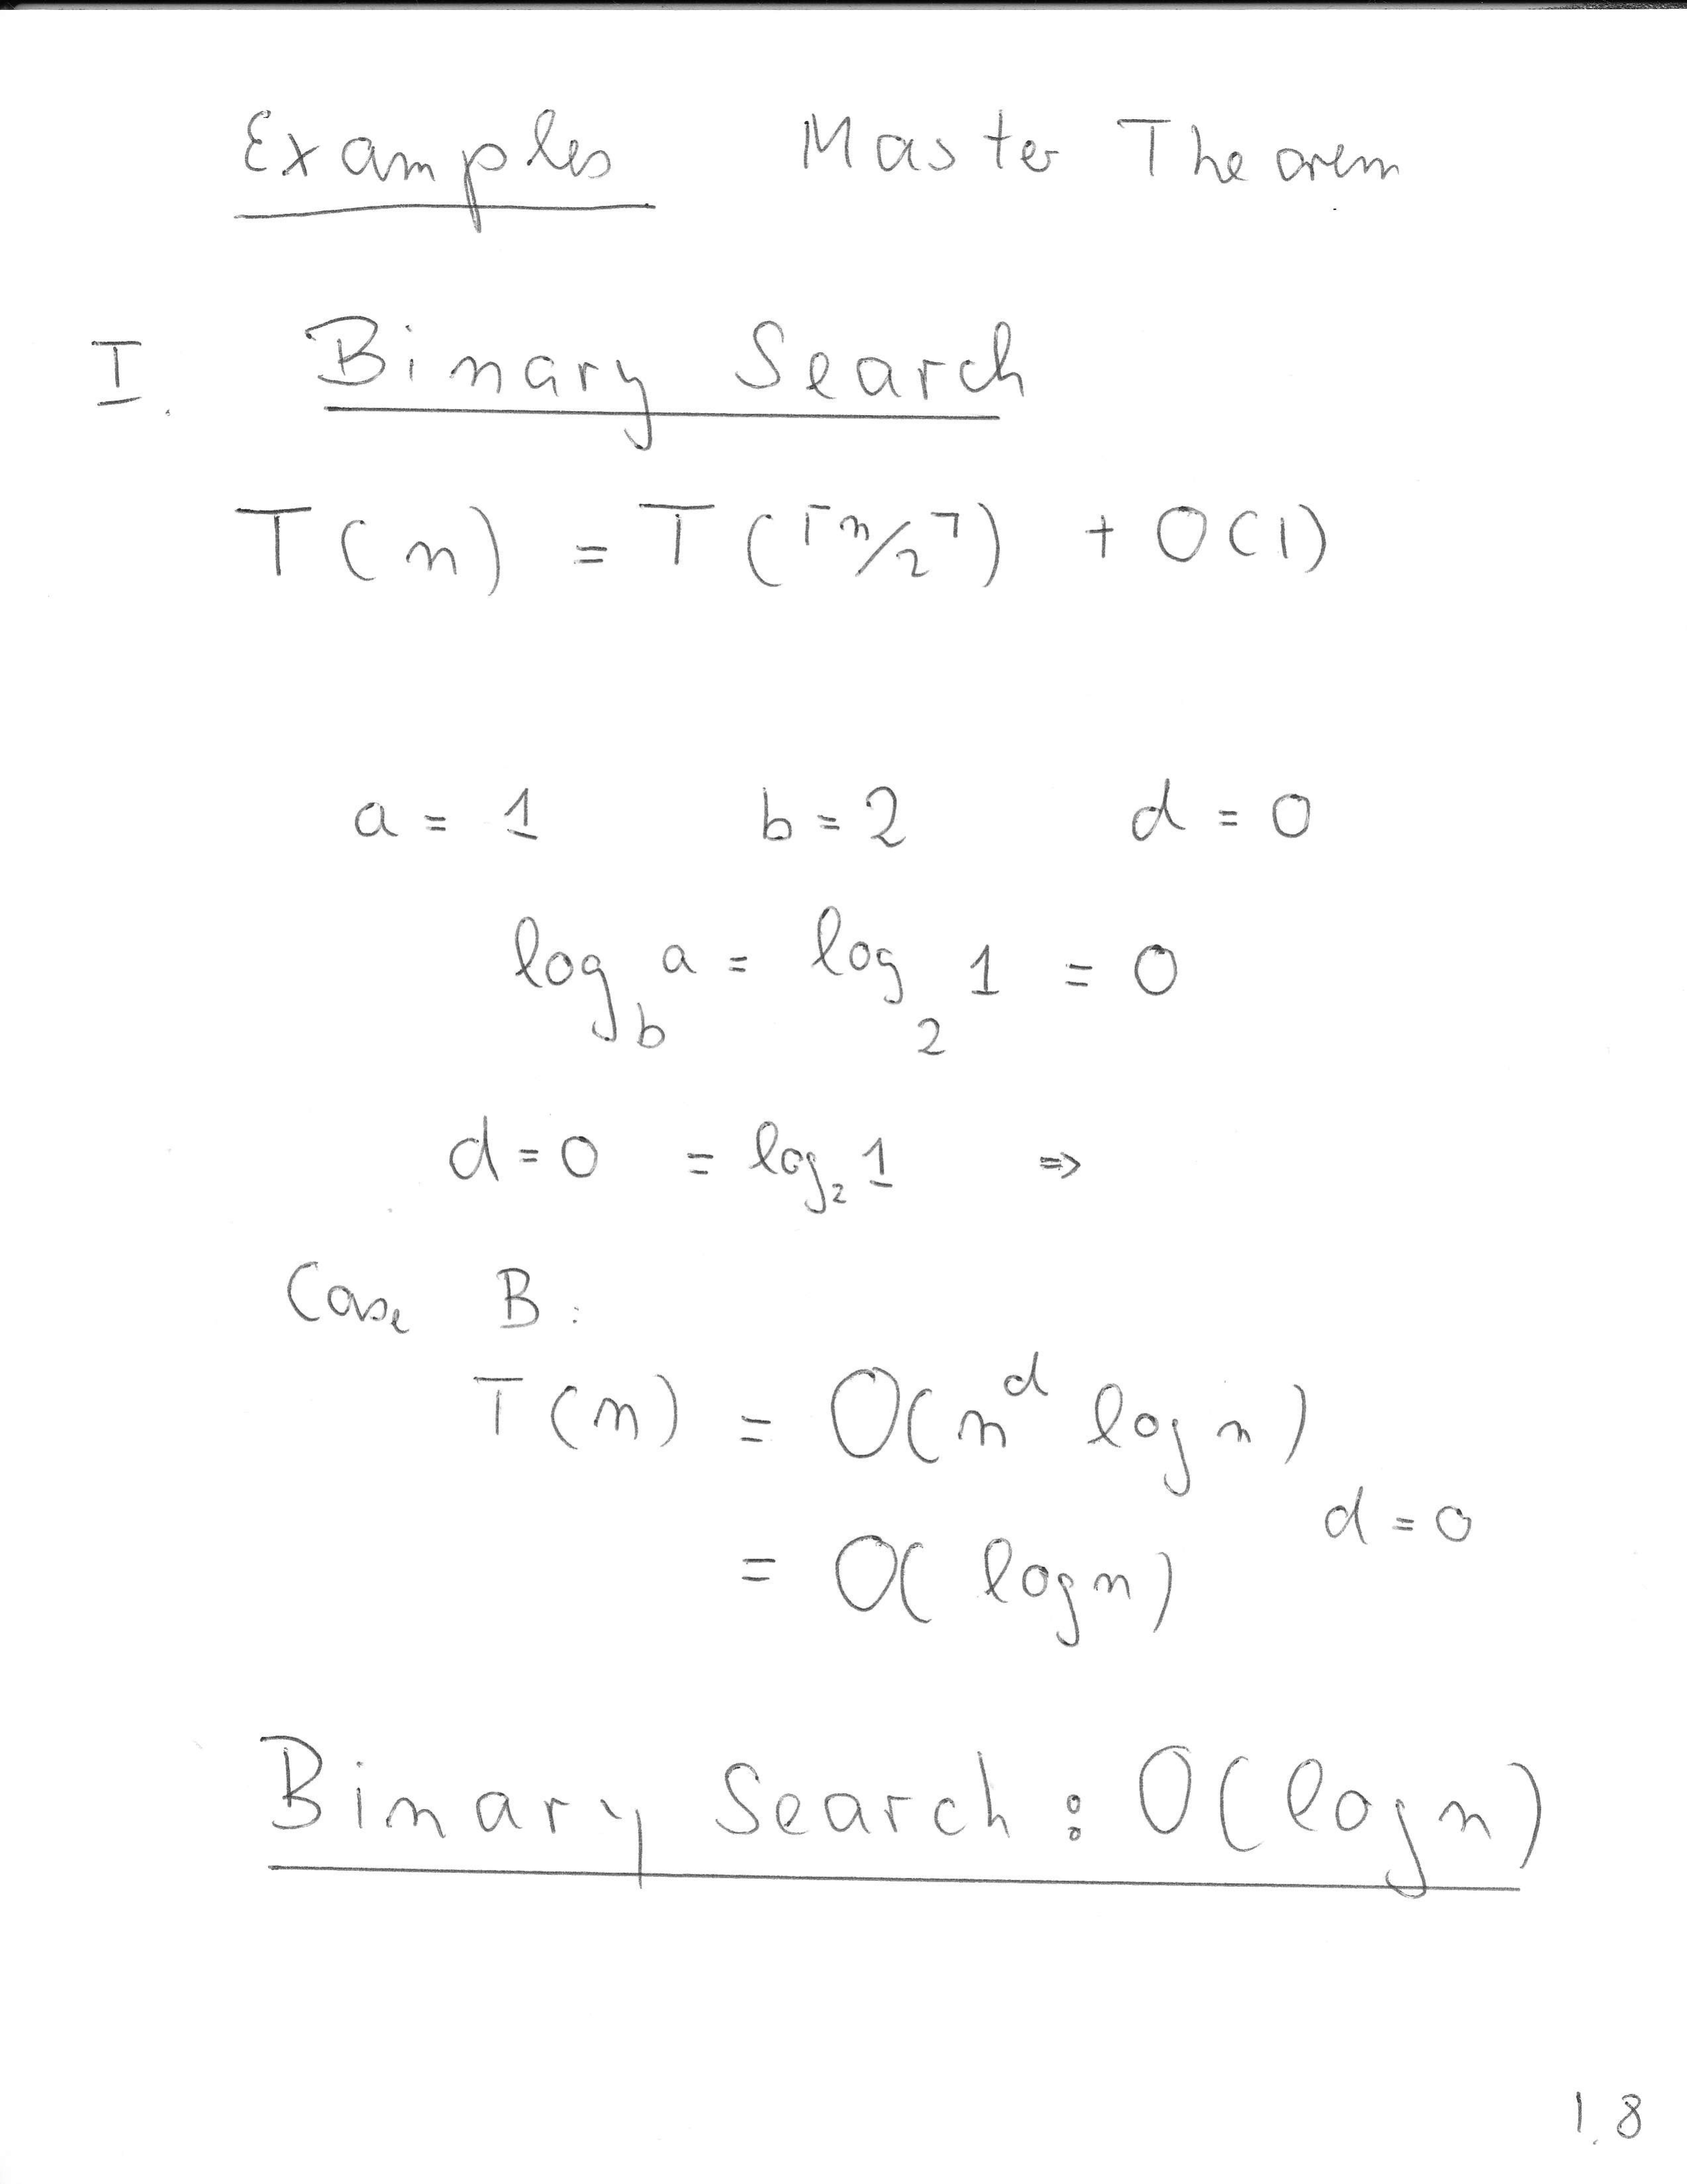 Examples Master Theorem
I. Binary Search
T(n) = T(⌈n/2⌉) + O(1)
a = 1 b = 2 d = 0
log_b a = log_2 1 = 0
d = 0 = log_2 1 =>
Case B:
T(n) = O(n^d log n)
d = 0
= O(log n)
Binary Search: O(log n)
1.8